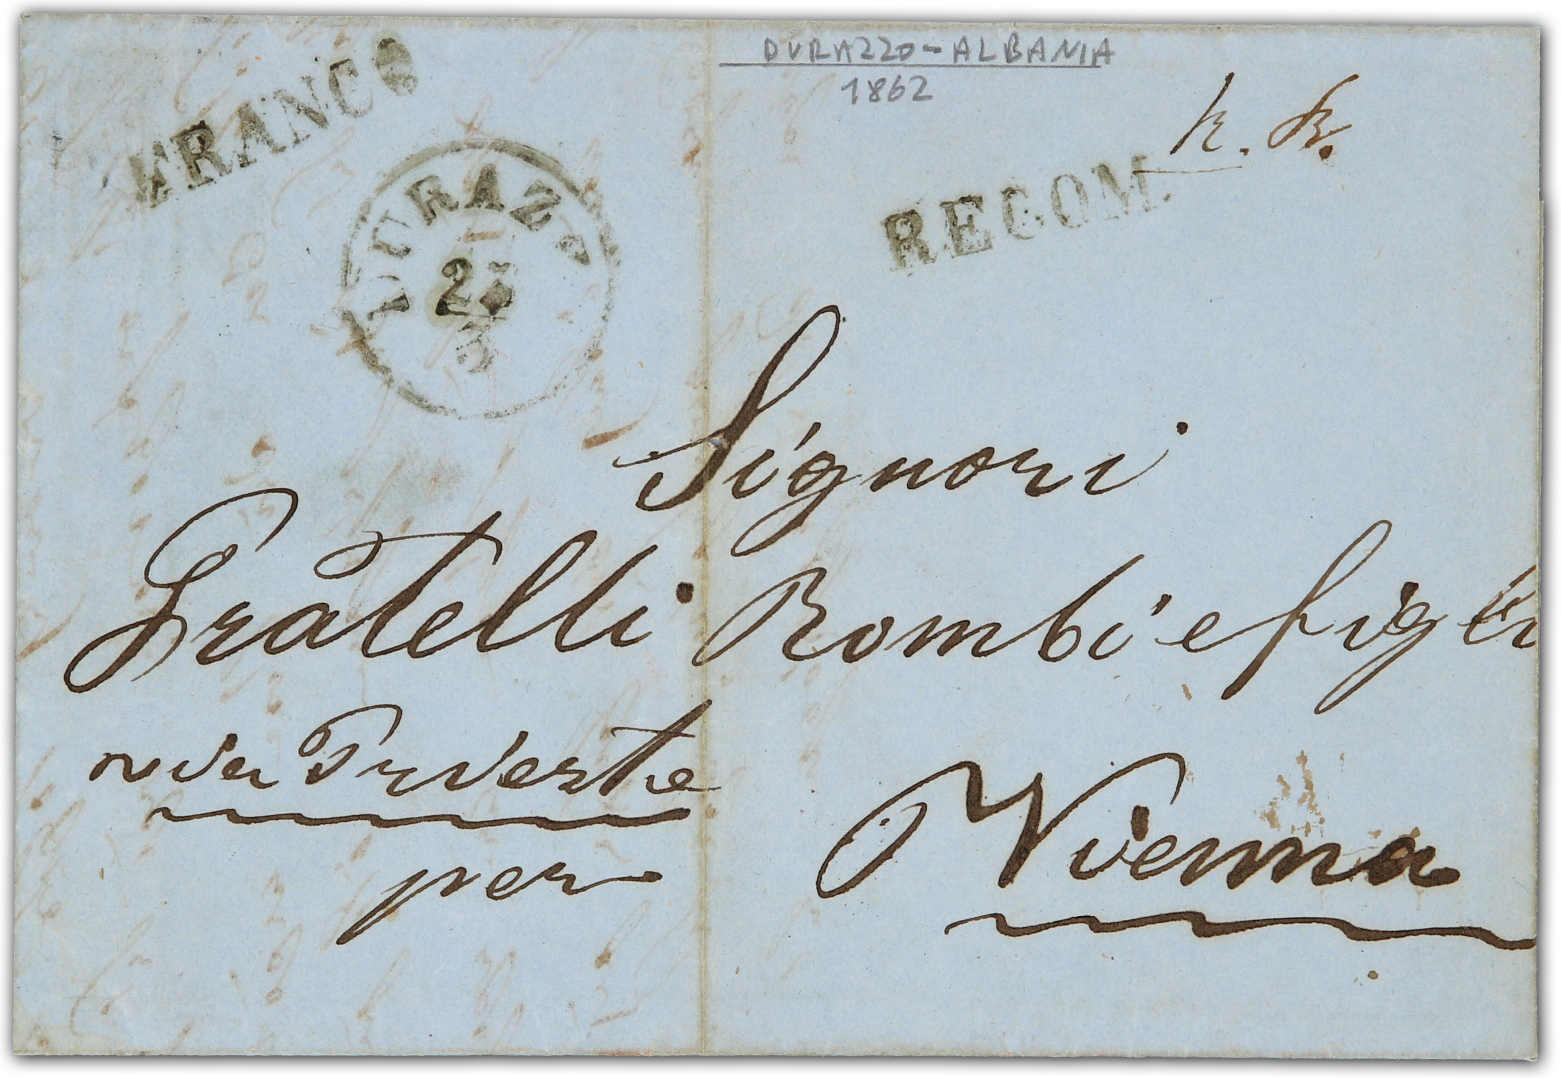 DURAZZO-ALBANIA
1862
FRANCO
RECOM.
DURAZZO
5
Signori
Fratelli Rombi e figli
via Trieste
per
Vienna